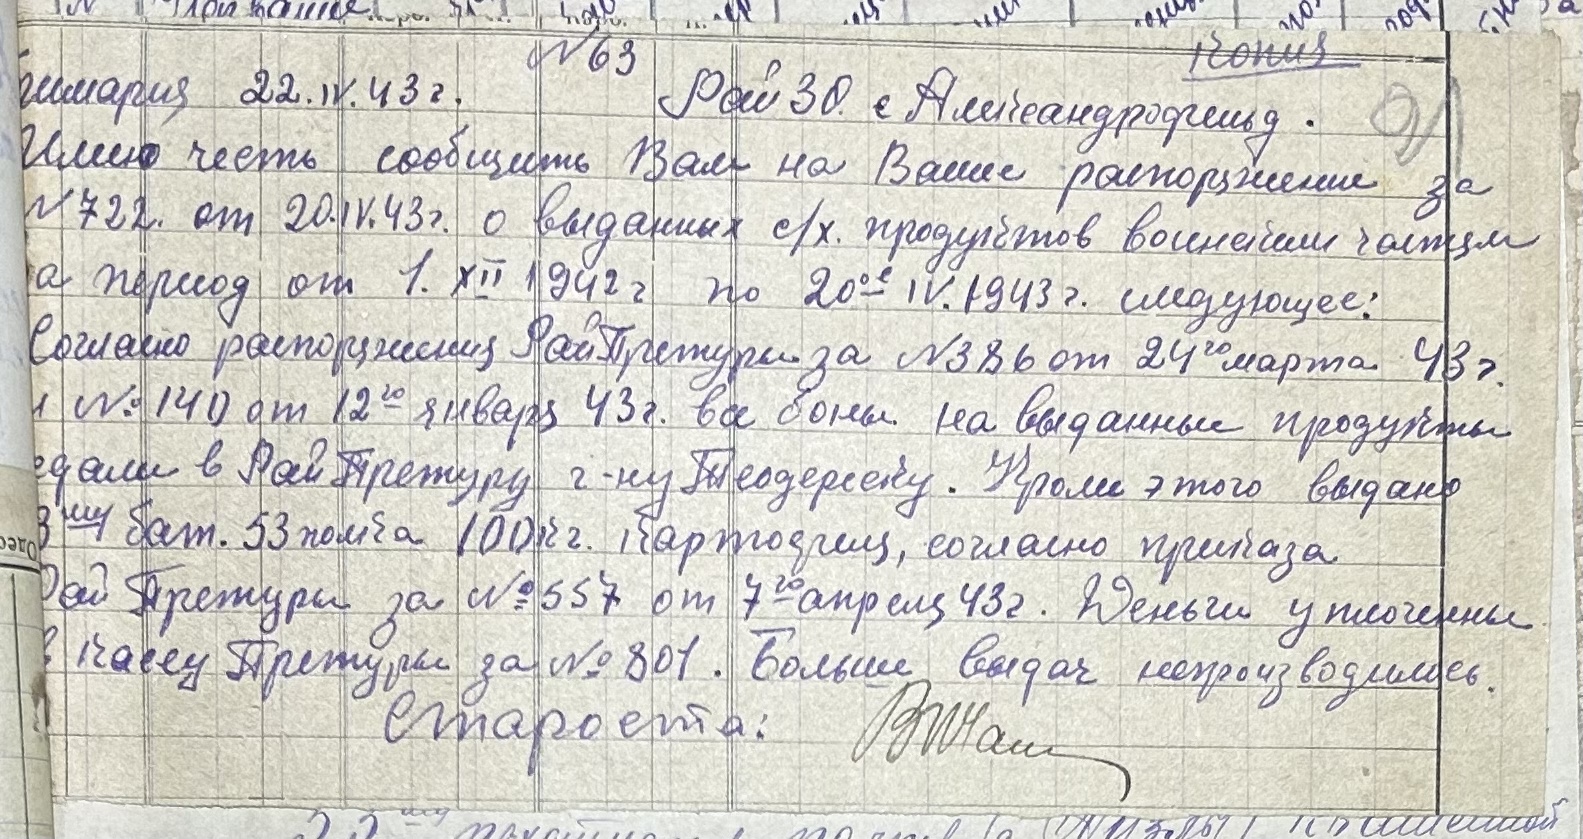 №63
Копия
имария 22.IV.43г. Рай ЗО. с Александрофельд.
Имею честь сообщить Вам на Ваше распоряжение за
№722. от 20.IV.43г. о выданных с/х. продуктов воинским частям
а период от 1.XII 1942г по 20ое IV.1943г. следующее:
Согласно распоряжения РайПретуры за №386 от 24го марта 43г.
и №140 от 12го января 43г. все боны на выданные продукты
едали в РайПретуру г-ну Теодереску. Кроме этого выдано
3му бат. 53 полка 100 кг. картофеля, согласно приказа
Рай Претуры за №557 от 7го апреля 43г. Деньги уплоченны
в кассу Претуры за №801. Больше выдач непроизводились.
Староста: